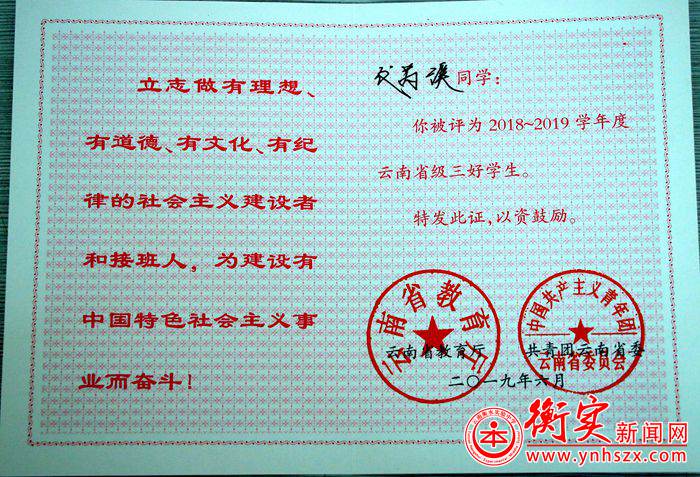 立志做有理想、
有道德、有文化、有纪
律的社会主义建设者
和接班人，为建设有
中国特色社会主义事
业而奋斗！
同学：
你被评为 2018~2019 学年度
云南省级三好学生。
特发此证，以资鼓励。
云南省教育厅
云南省教育厅
中国共产主义青年团
云南省委员会
共青团云南省委
二〇一九年六月
本
衡实新闻网
www.ynhszx.com